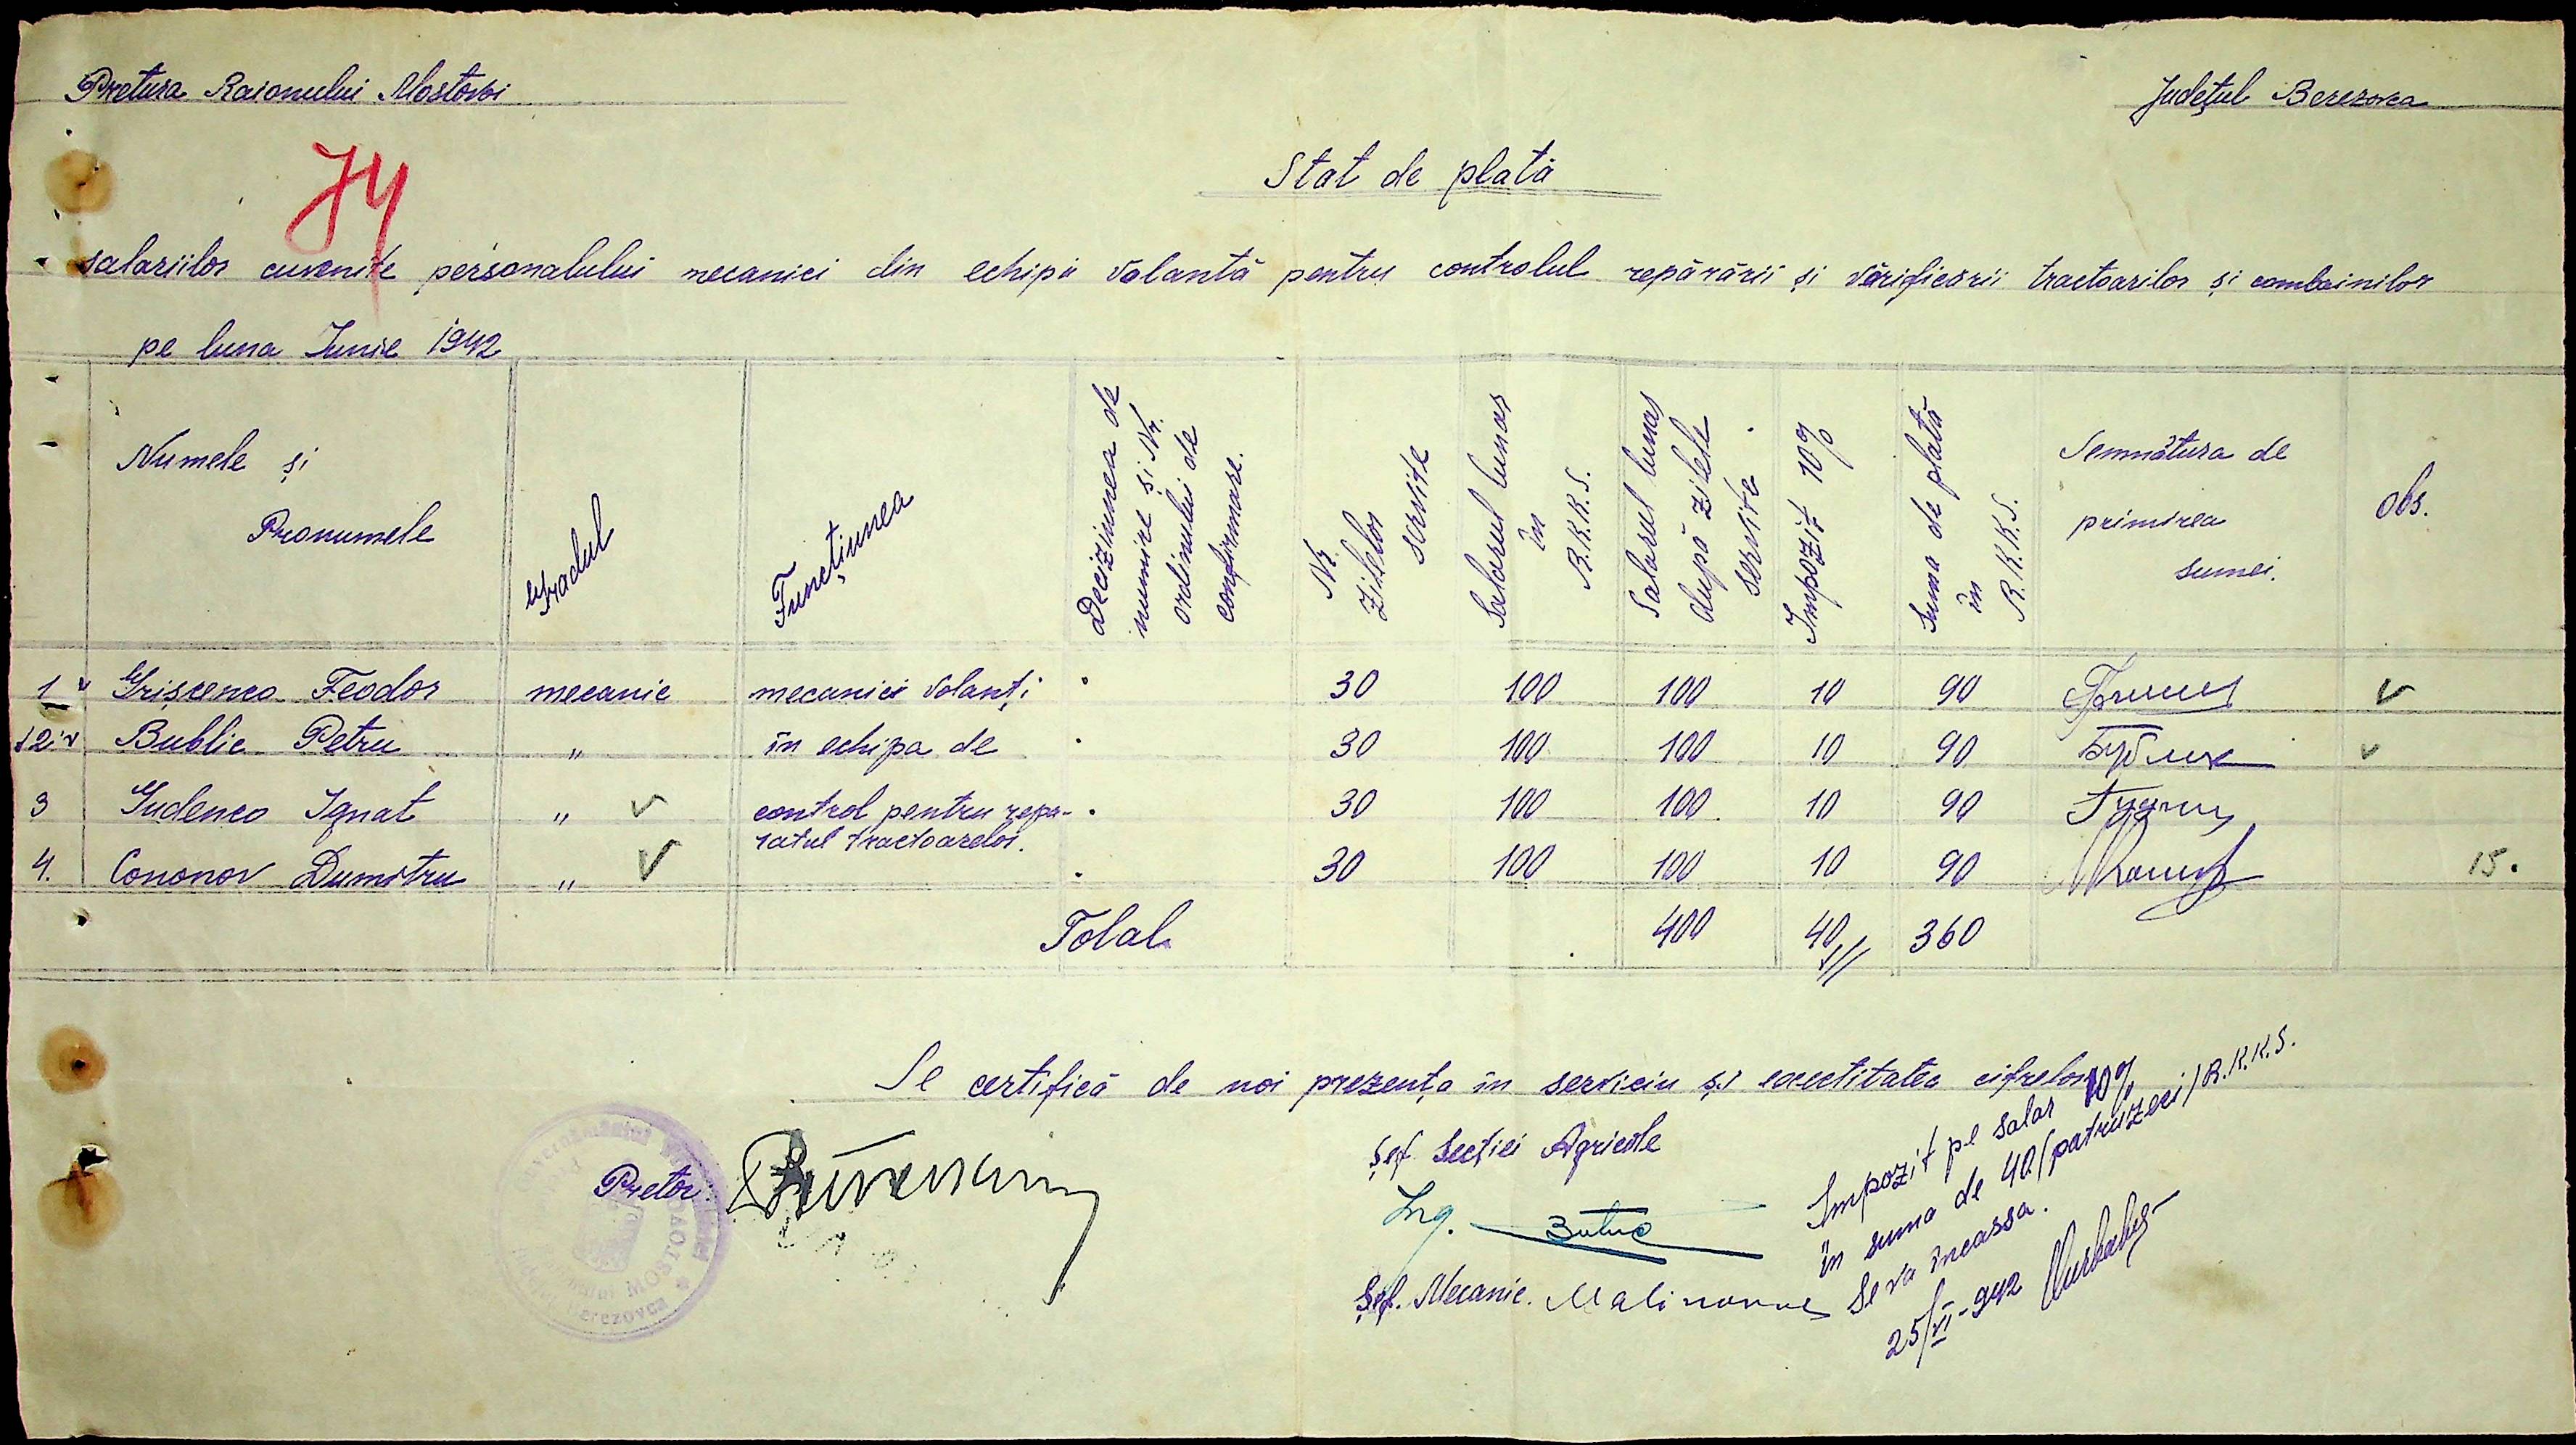 Pretura Raionului Mostovoi
Județul Berezovca
Stat de plată
salariilor cuvenite personalului mecanici din echipa volantă pentru controlul reparării și vărificării tractoarilor și combainilor
pe luna Iunie 1942
Numele și Pronumele
Gradul
Funcțiunea
Deciziunea de numire și Nr. ordinului de confirmare.
Nr. zilelor servite
Salarul lunar în R.K.K.S.
Salarul lunar după zilele servite
Impozit 10%
Suma de plată în R.K.K.S.
Semnătura de primirea sumei.
Obs.
1 Grișcenco Feodor mecanic mecanici volanți 30 100 100 10 90
2 Bublic Petru " în echipa de 30 100 100 10 90 Бублик
3 Gudenco Ignat " control pentru repa- 30 100 100 10 90
ratul tractoarelor.
4. Cononov Dumitru " 30 100 100 10 90 15.
Total 400 40 360
Se certifică de noi prezența în serviciu și exactitatea cifrelor
Pretor
Șef Secției Agricole
Ing.
Șef. Mecanic.
Impozit pe salar 10%
în suma de 40/patruzeci/R.K.K.S.
Se va încassa.
25/VI-942
MOSTOVOI
Berezovca